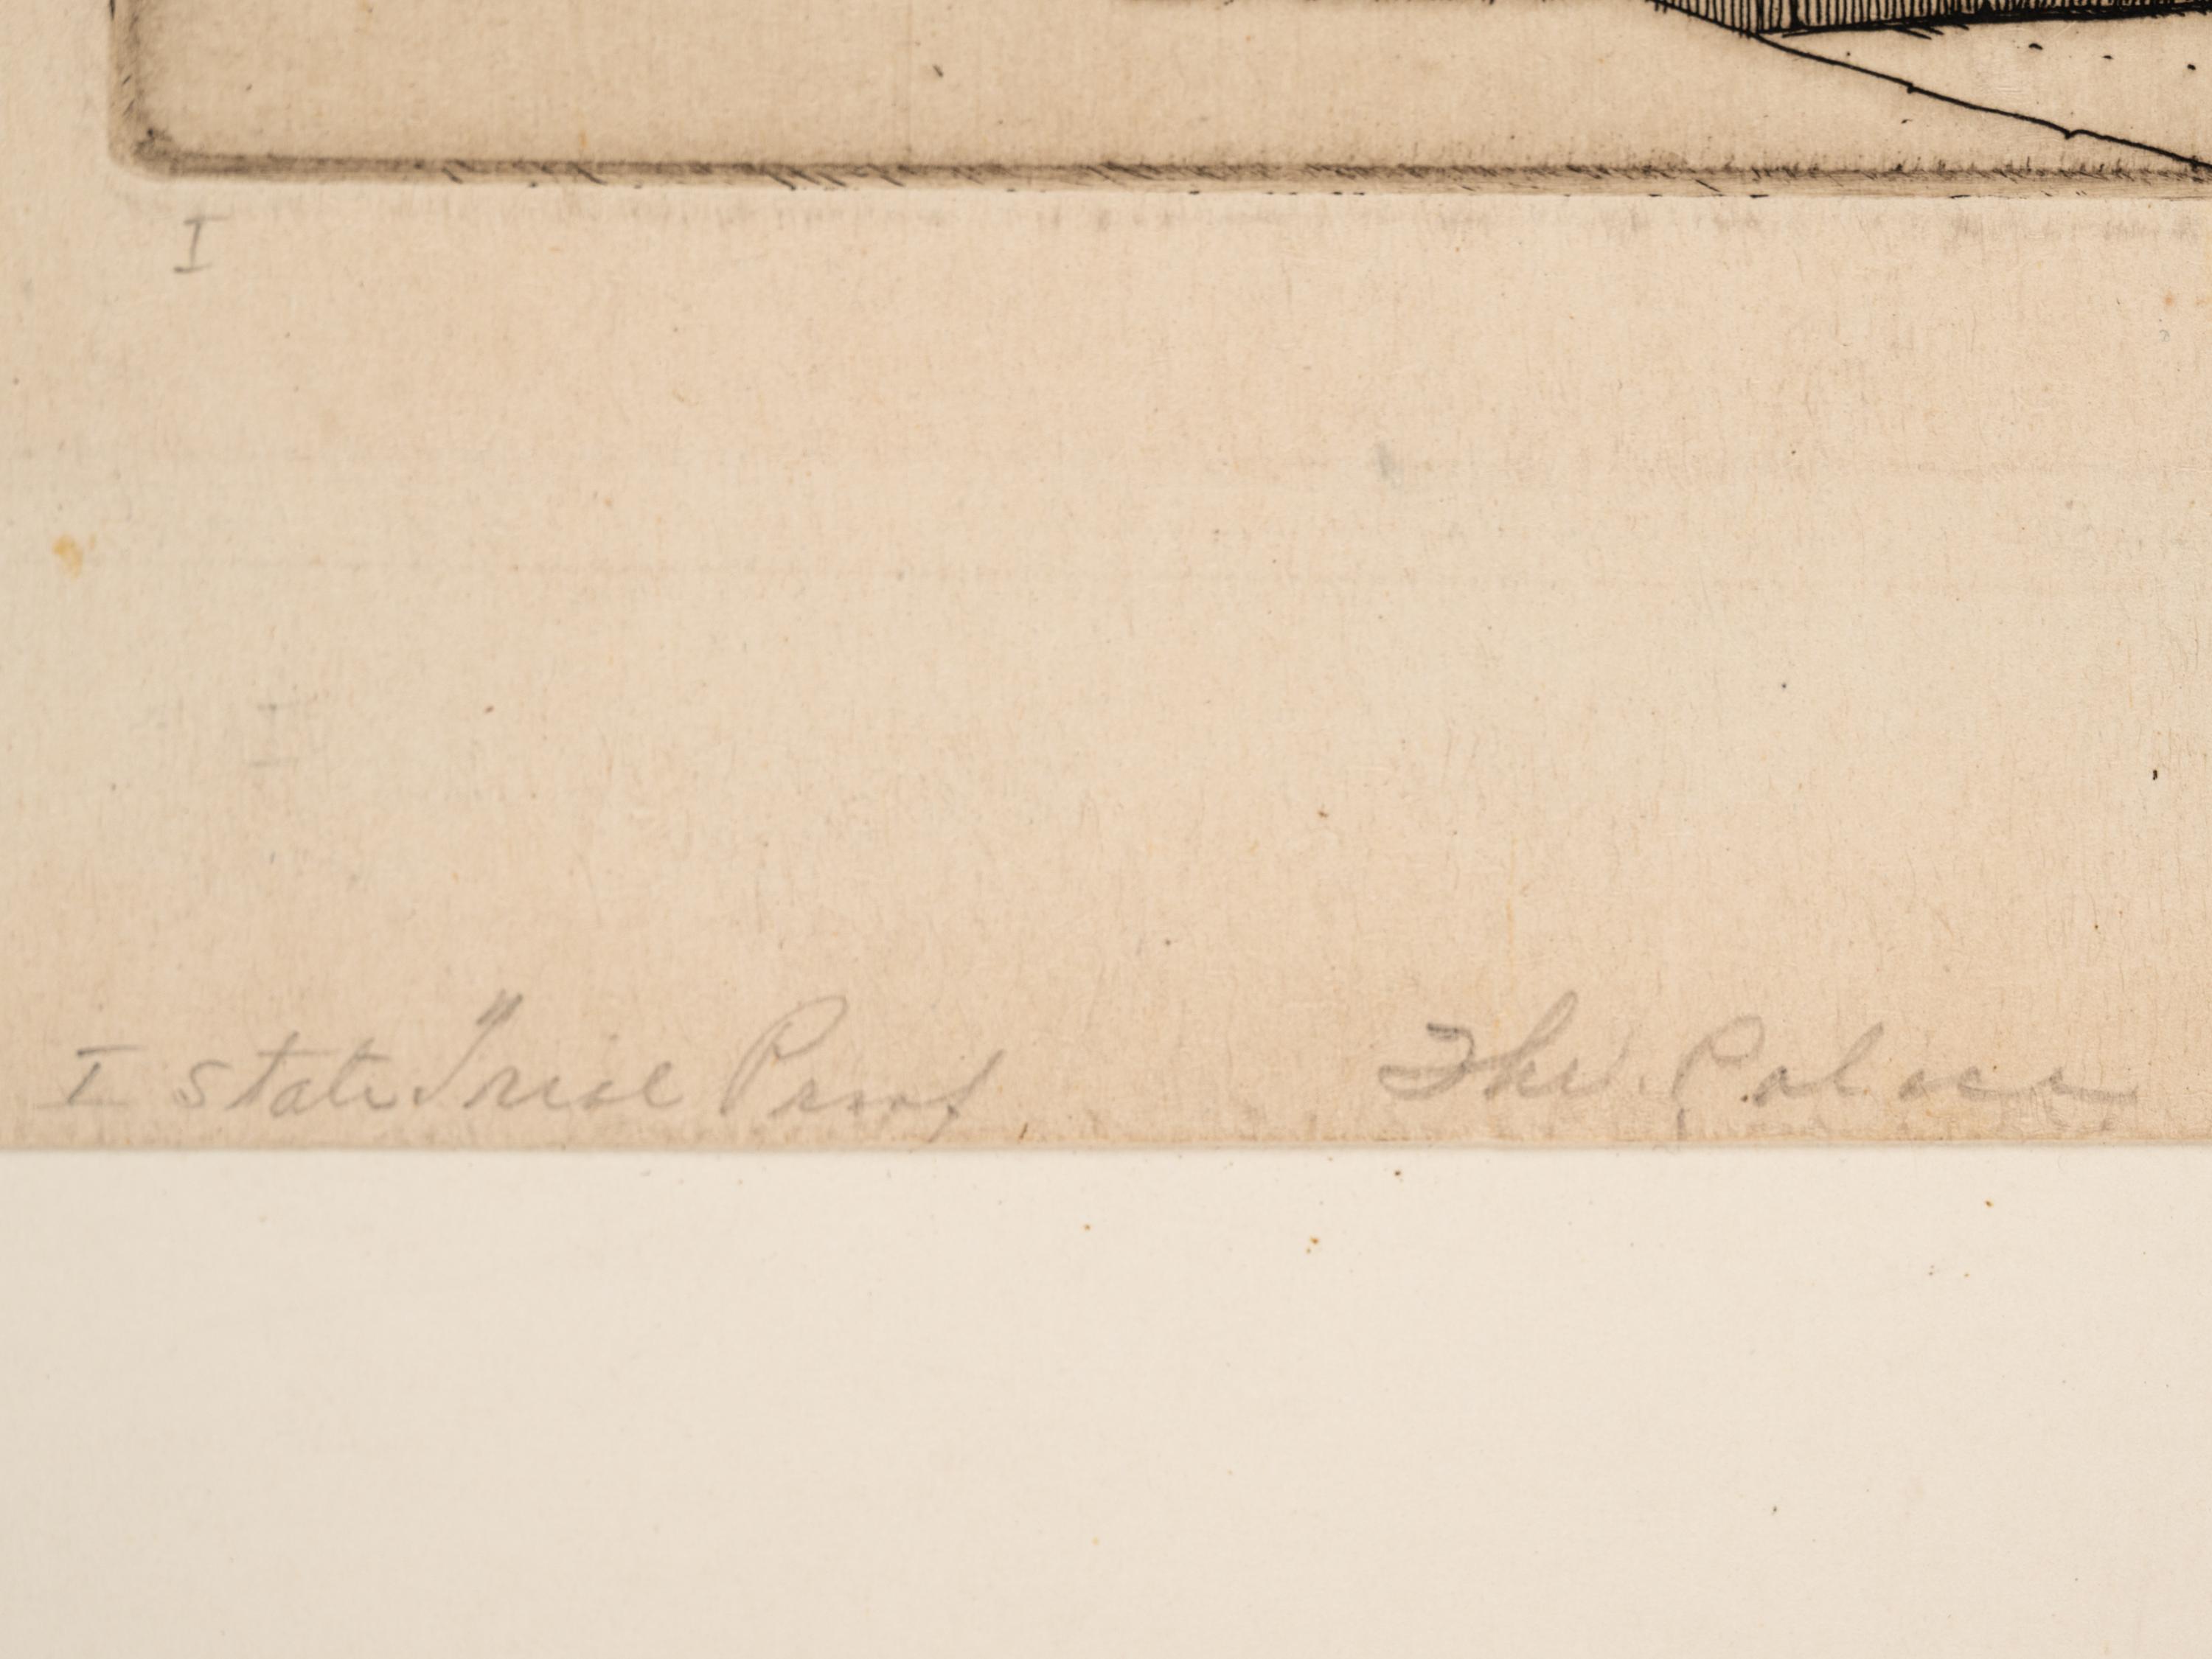 I
I
I state Trial Proof
The Palace